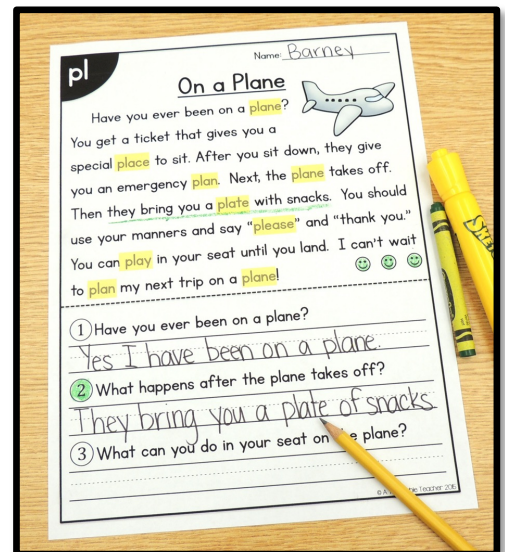 pl
Name: Barney
On a Plane
Have you ever been on a plane?
You get a ticket that gives you a
special place to sit. After you sit down, they give
you an emergency plan. Next, the plane takes off.
Then they bring you a plate with snacks. You should
use your manners and say “please” and “thank you.”
You can play in your seat until you land. I can't wait
to plan my next trip on a plane!
1 Have you ever been on a plane?
Yes I have been on a plane.
2 What happens after the plane takes off?
They bring you a plate of snacks
3 What can you do in your seat on plane?
Teacher 2016